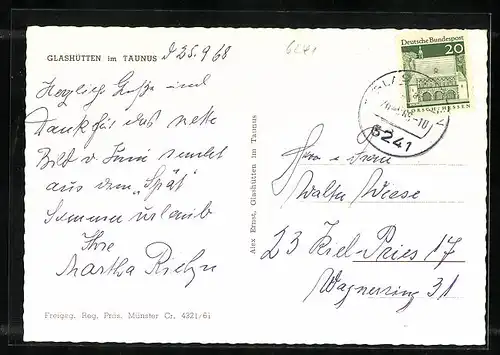 GLASHÜTTEN im TAUNUS d 25.9.68
6241
Deutsche Bundespost
20
LORSCH/HESSEN
Herzliche Grüße und
Dank für das nette
Bild v. Inni sendet
aus dem "Spät"
Sommerurlaub
Ihre
Martha
GLAS
6241
Herrn u. Frau
Walter Wiese
23 Kiel-Pries 17
Wagnerring 31
Alex Ernst, Glashütten im Taunus
Freigeg. Reg. Präs. Münster Cr. 4321/61